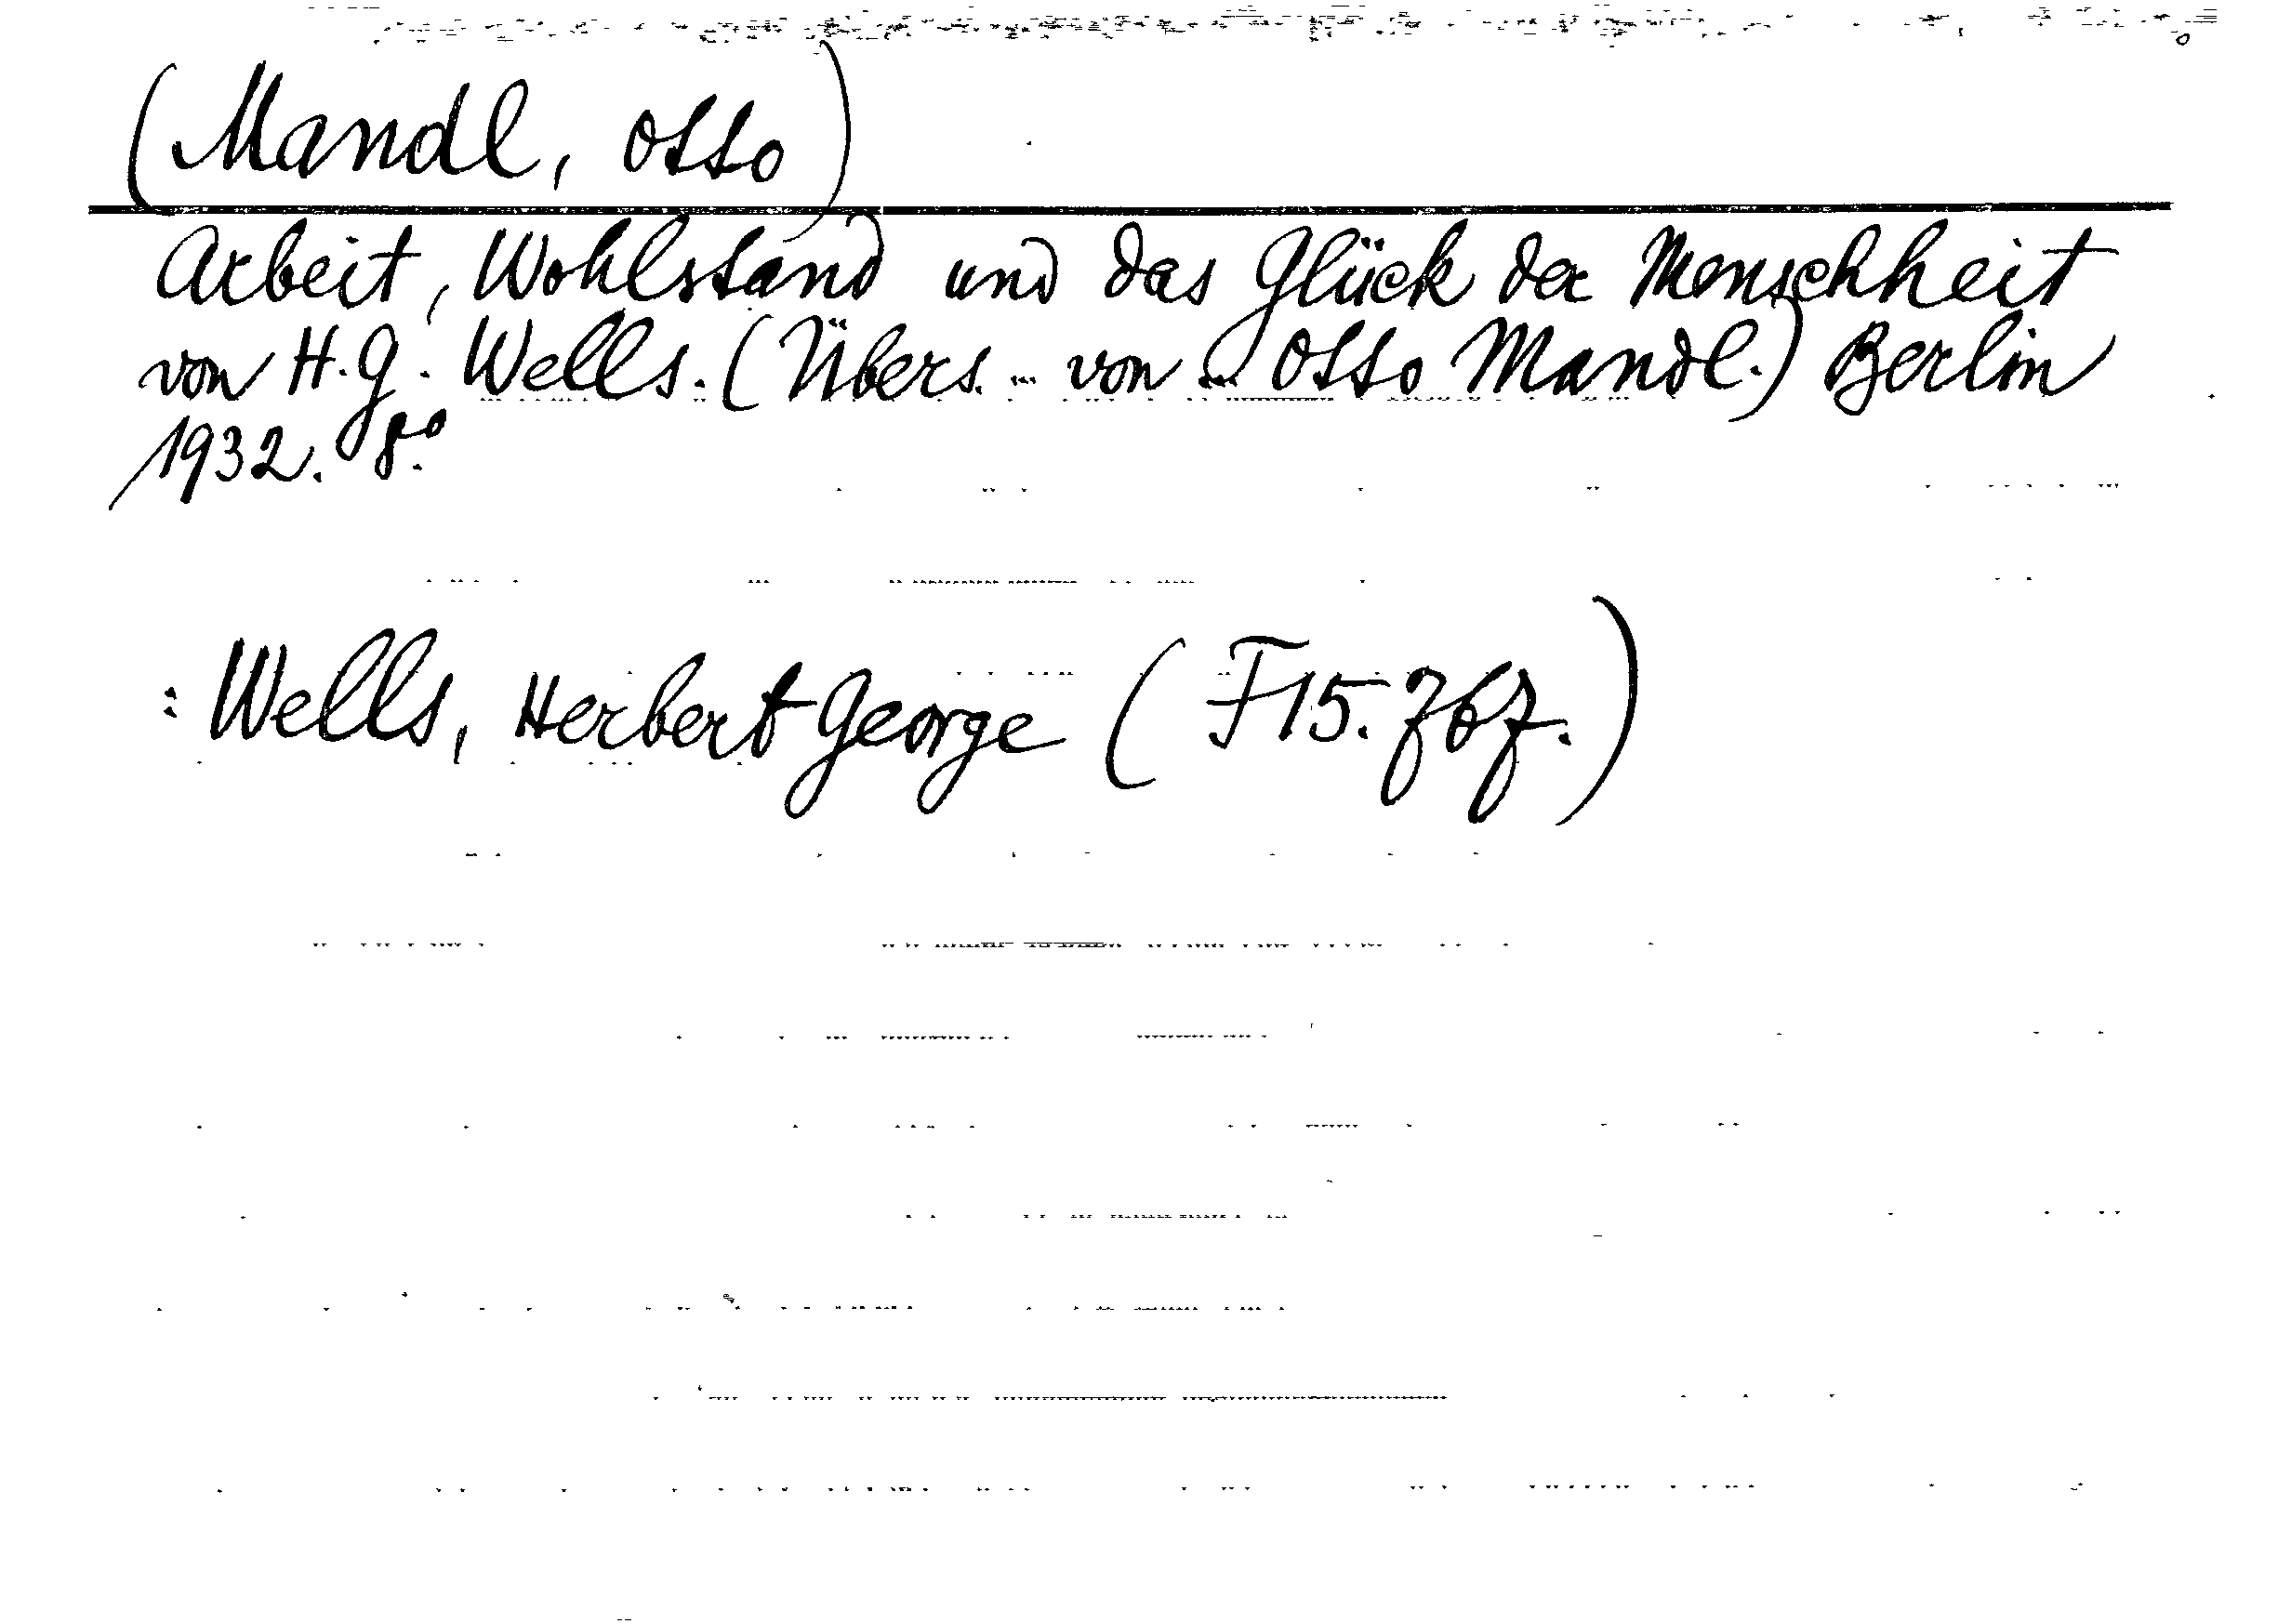 (Mandl, Otto)
Arbeit, Wohlstand und das Glück der Menschheit
von H. G. Wells. (Übers. ... von ... Otto Mandl.) Berlin
1932. 8°.
: Wells, Herbert George (F15.767.)